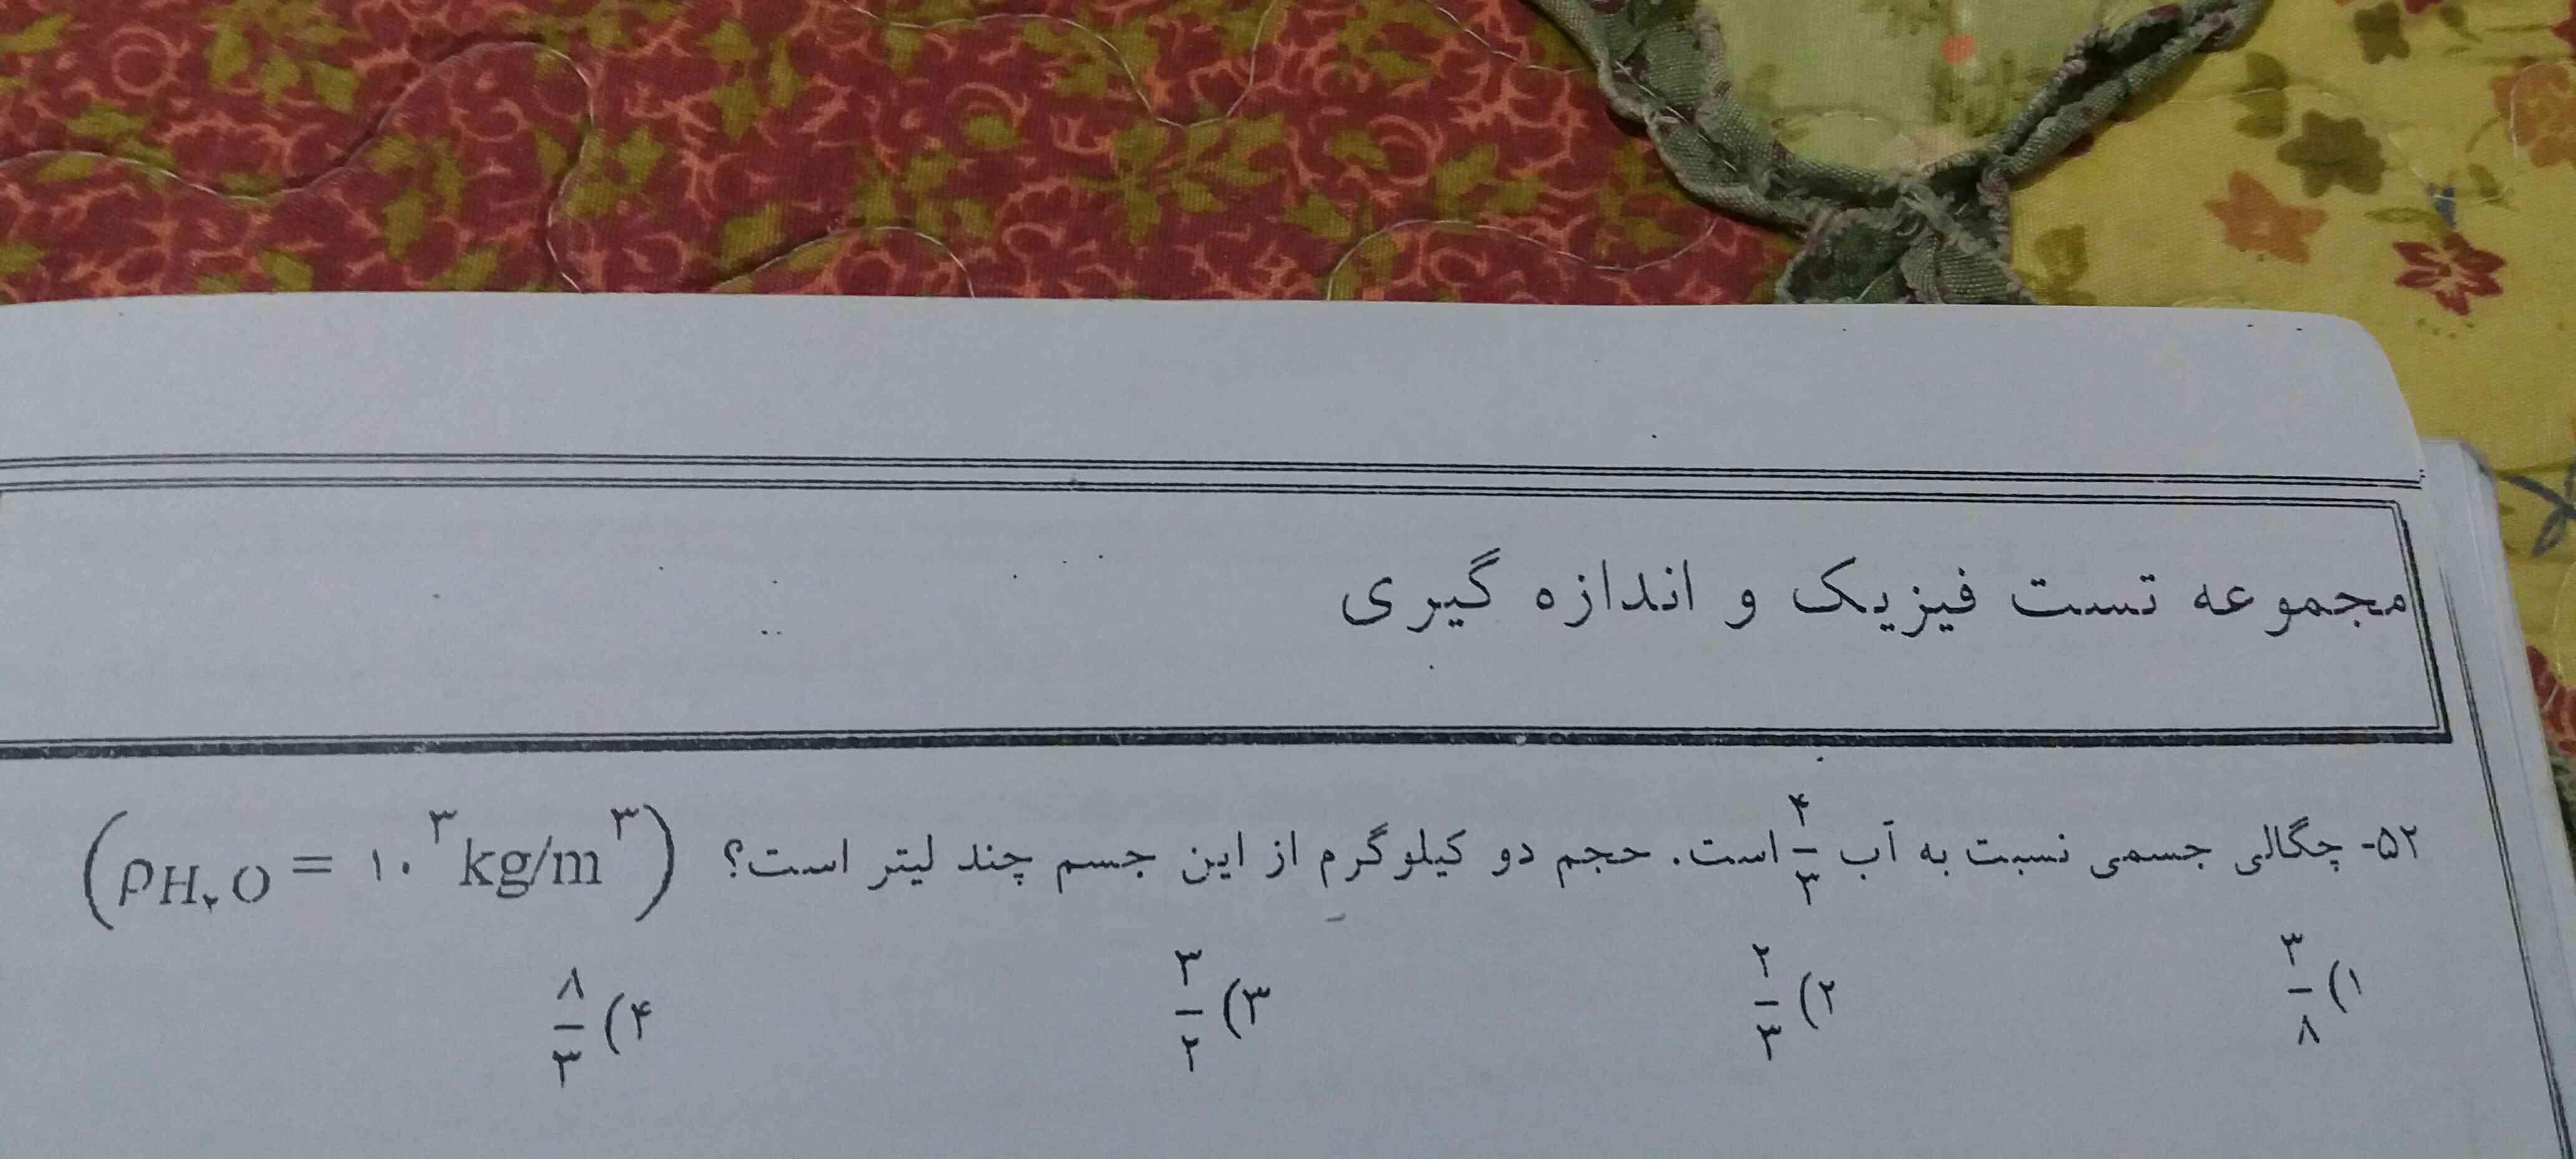 مجموعه تست فیزیک و اندازه گیری
۵۲- چگالی جسمی نسبت به آب ۴/۳ است. حجم دو کیلوگرم از این جسم چند لیتر است؟ (ρH₂O = ۱۰^۳ kg/m^۳)
۱) ۳/۸ ۲) ۲/۳ ۳) ۳/۲ ۴) ۸/۳